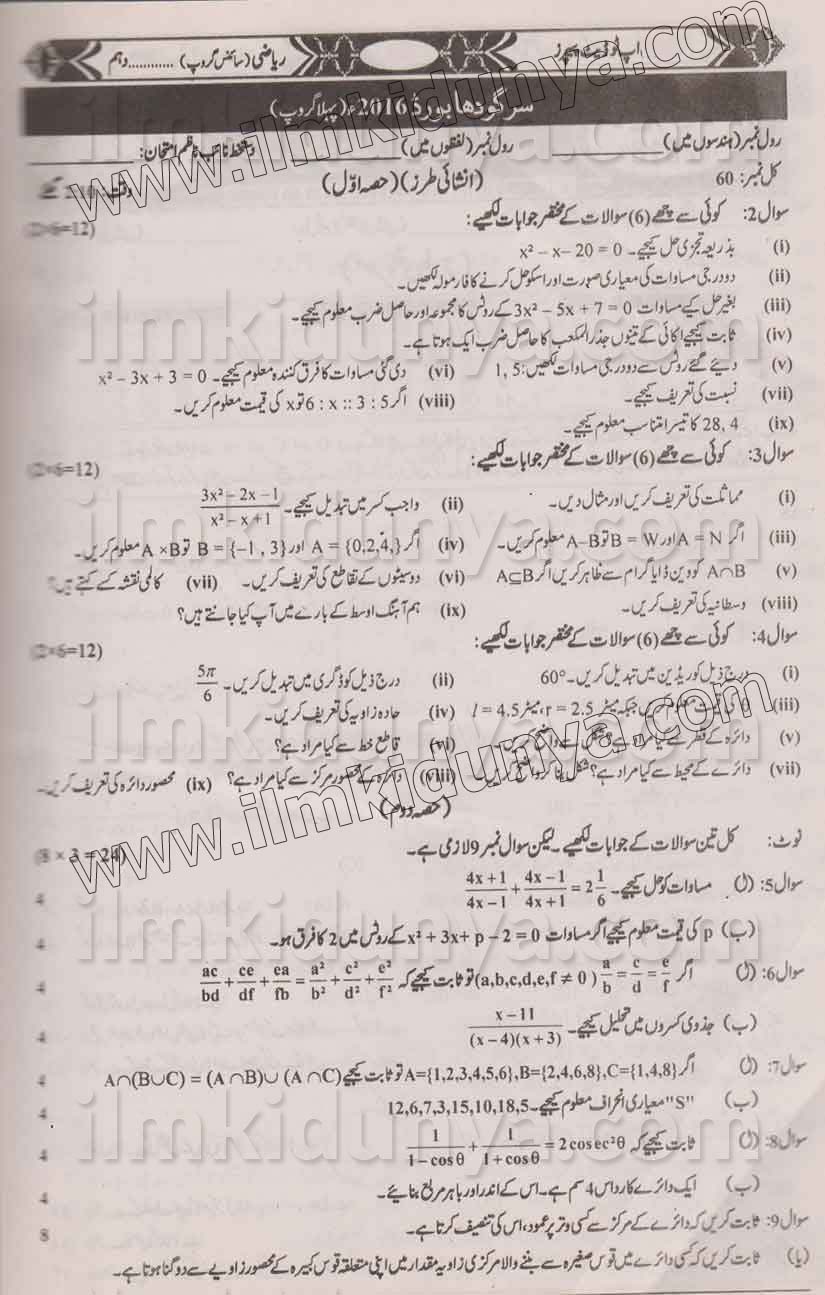 اپ ٹو ڈیٹ پیپرز
ریاضی (سائنس گروپ) ............ دہم
سرگودھا بورڈ 2016ء (پہلا گروپ)
رول نمبر (ہندسوں میں) ____________ رول نمبر (لفظوں میں) ____________ دستخط نائب ناظم امتحان: ____________
کل نمبر: 60 (انشائی طرز) (حصہ اوّل) وقت: 2:10 گھنٹے
سوال 2: کوئی سے چھے (6) سوالات کے مختصر جوابات لکھیے: (2×6=12)
(i) بذریعہ تجزی حل کیجیے۔ x² – x– 20 = 0
(ii) دو درجی مساوات کی معیاری صورت اور اسکو حل کرنے کا فارمولہ لکھیں۔
(iii) بغیر حل کیے مساوات 3x² – 5x + 7 = 0 کے روٹس کا مجموعہ اور حاصل ضرب معلوم کیجیے۔
(iv) ثابت کیجیے اکائی کے تینوں جذر المکعب کا حاصل ضرب ایک ہوتا ہے۔
(v) دیئے گئے روٹس سے دو درجی مساوات لکھیں: 1, 5 (vi) دی گئی مساوات کا فرق کنندہ معلوم کیجیے۔ x² – 3x + 3 = 0
(vii) نسبت کی تعریف کیجیے۔ (viii) اگر 6 : x :: 3 : 5 تو x کی قیمت معلوم کریں۔
(ix) 28, 4 کا تیسرا متناسب معلوم کیجیے۔
سوال 3: کوئی سے چھے (6) سوالات کے مختصر جوابات لکھیے: (2×6=12)
(i) مماثلت کی تعریف کریں اور مثال دیں۔ (ii) واجب کسر میں تبدیل کیجیے۔ (3x² – 2x –1)/(x² – x +1)
(iii) اگر A = N اور B = W تو A–B معلوم کریں۔ (iv) اگر A = {0,2,4,} اور B = {–1 , 3} تو A ×B معلوم کریں۔
(v) A∩B کو وین ڈایاگرام سے ظاہر کریں اگر A⊆B (vi) دو سیٹوں کے تقاطع کی تعریف کریں۔ (vii) کالمی نقشہ کسے کہتے ہیں؟
(viii) وسطانیہ کی تعریف کریں۔ (ix) ہم آہنگ اوسط کے بارے میں آپ کیا جانتے ہیں؟
سوال 4: کوئی سے چھے (6) سوالات کے مختصر جوابات لکھیے: (2×6=12)
(i) درج ذیل کو ریڈین میں تبدیل کریں۔ 60° (ii) درج ذیل کو ڈگری میں تبدیل کریں۔ 5π/6
(iii) θ کی قیمت معلوم کریں جبکہ میٹر r = 2.5، میٹر l = 4.5 (iv) حادہ زاویہ کی تعریف کریں۔
(v) دائرہ کے قطر سے کیا مراد ہے؟ شکل سے واضح کریں۔ (vi) قاطع خط سے کیا مراد ہے؟
(vii) دائرے کے محیط سے کیا مراد ہے؟ شکل بنا کر واضح کریں۔ (viii) دائرہ کے محصور مرکز سے کیا مراد ہے؟ (ix) محصور دائرہ کی تعریف کریں۔
(حصہ دوم)
نوٹ: کل تین سوالات کے جوابات لکھیے۔ لیکن سوال نمبر 9 لازمی ہے۔ (8 × 3 = 24)
سوال 5: (ل) مساوات کو حل کیجیے۔ (4x+1)/(4x–1) + (4x–1)/(4x+1) = 2 1/6 4
(ب) p کی قیمت معلوم کیجیے اگر مساوات x² + 3x+ p – 2 = 0 کے روٹس میں 2 کا فرق ہو۔ 4
سوال 6: (ل) اگر a/b = c/d = e/f (a,b,c,d,e,f ≠ 0) تو ثابت کیجیے کہ ac/bd + ce/df + ea/fb = a²/b² + c²/d² + e²/f² 4
(ب) جذوی کسروں میں تحلیل کیجیے۔ (x–11)/((x–4)(x+3)) 4
سوال 7: (ل) اگر A={1,2,3,4,5,6},B={2,4,6,8},C={1,4,8} تو ثابت کیجیے A∩(B∪C) = (A ∩B)∪ (A ∩C) 4
(ب) "S" معیاری انحراف معلوم کیجیے۔ 12,6,7,3,15,10,18,5 4
سوال 8: (ل) ثابت کیجیے کہ 1/(1–cosθ) + 1/(1+cosθ) = 2cosec²θ 4
(ب) ایک دائرے کا رداس 4 سم ہے۔ اس کے اندر اور باہر مربع بنائیے۔ 4
سوال 9: ثابت کریں کہ دائرے کے مرکز سے کسی وتر پر عمود، اس کی تنصیف کرتا ہے۔ 8
(یا) ثابت کریں کہ کسی دائرے میں قوس صغیرہ سے بننے والا مرکزی زاویہ مقدار میں اپنی متعلقہ قوس کبیرہ کے محصور زاویے سے دوگنا ہوتا ہے۔
www.ilmkidunya.com
www.ilmkidunya.com
ilmkidunya.com
ilmkidunya.com
ilmkidunya.com
ilmkidunya.com
ilmkidunya.com
ilmkidunya.com